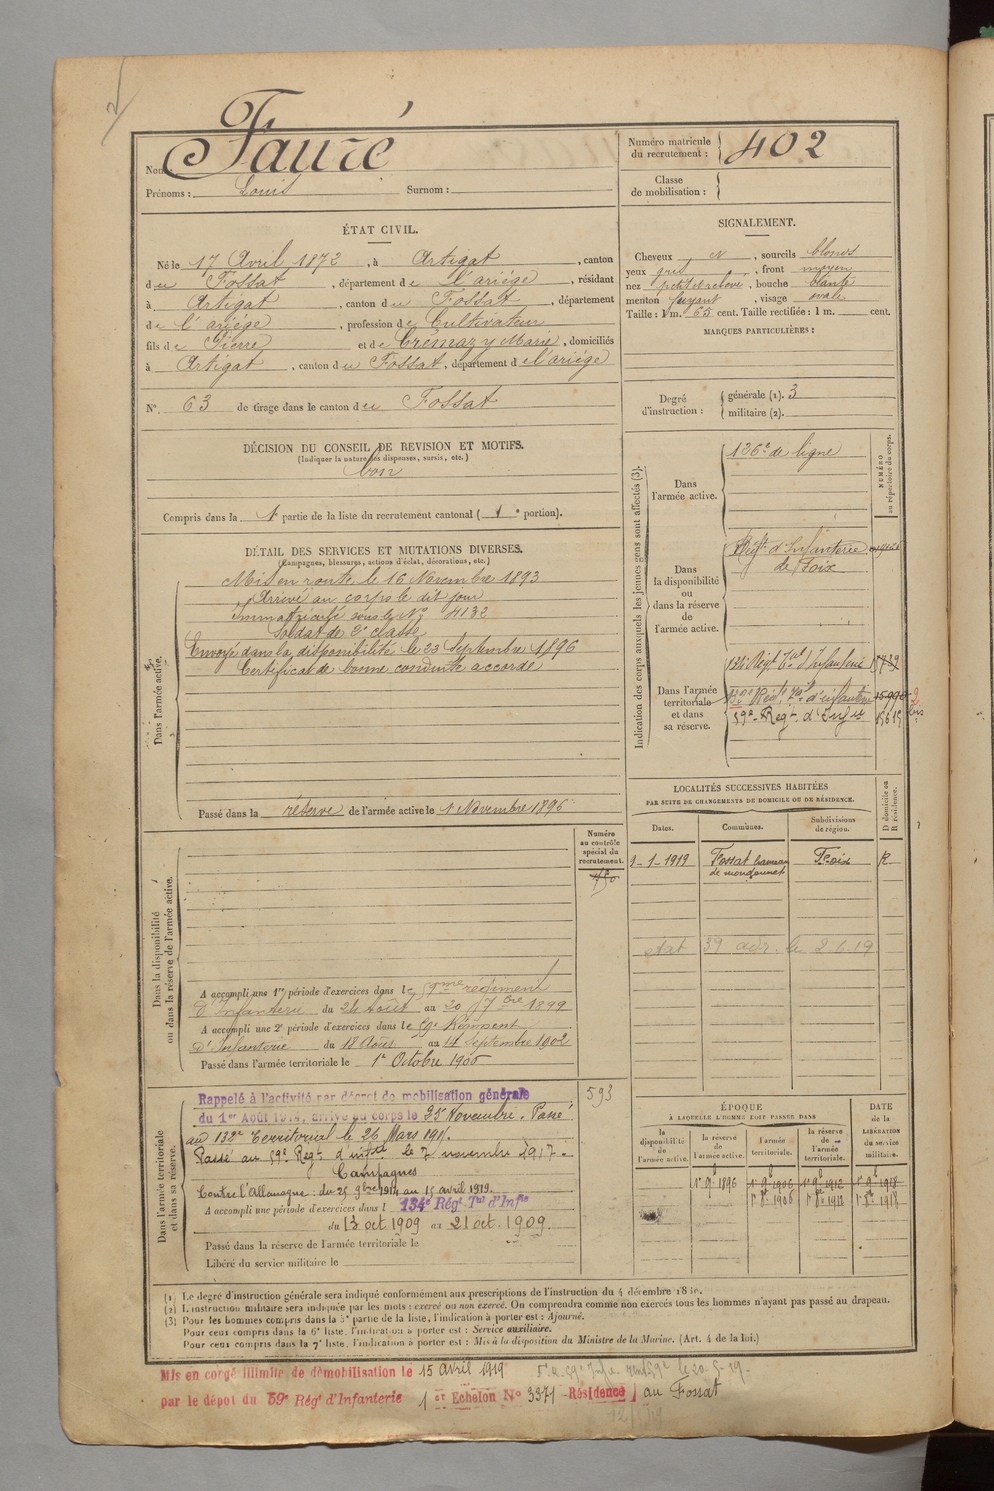 Fauré
Nom :
Prénoms : Louis Surnom :
Numéro matricule du recrutement : 402
Classe de mobilisation :
ÉTAT CIVIL.
Né le 17 Avril 1872, à Artigat, canton
du Fossat, département de l'ariége, résidant
à Artigat, canton du Fossat, département
de l'ariége, profession de Cultivateur
fils de Pierre et de Crémazy Marie, domiciliés
à Artigat, canton du Fossat, département de l'ariége
N° 63 de tirage dans le canton du Fossat
SIGNALEMENT.
Cheveux N, sourcils blonds
yeux gris, front moyen
nez petit et relevé, bouche
menton fuyant, visage ovale
Taille : 1 m. 65 cent. Taille rectifiée : 1 m. cent.
MARQUES PARTICULIÈRES :
Degré d'instruction : générale (1). 3
militaire (2).
DÉCISION DU CONSEIL DE REVISION ET MOTIFS.
(Indiquer la nature des dispenses, sursis, etc.)
bon
Compris dans la 1e partie de la liste du recrutement cantonal (1e portion).
DÉTAIL DES SERVICES ET MUTATIONS DIVERSES.
(Campagnes, blessures, actions d'éclat, décorations, etc.)
Dans l'armée active.
Mis en route le 16 Novembre 1893
Arrivé au corps le dit jour
Immatriculé sous le N° 4132
Soldat de 2e classe
Envoyé dans la disponibilité le 23 Septembre 1896
Certificat de bonne conduite accordé
Passé dans la réserve de l'armée active le 1 Novembre 1896
Indication des corps auxquels les jeunes gens sont affectés (3).
NUMÉRO au répertoire du corps.
Dans l'armée active.
126e de ligne
Dans la disponibilité ou dans la réserve de l'armée active.
Régt d'Infanterie
de Foix
Dans l'armée territoriale et dans sa réserve.
132e Régt Tal d'Infanterie
Régt Tal d'infanterie
59e Regt d'Infie
LOCALITÉS SUCCESSIVES HABITÉES
PAR SUITE DE CHANGEMENTS DE DOMICILE OU DE RÉSIDENCE.
Dates. Communes. Subdivisions de région. D domicile ou R résidence.
1-1-1919 Fossat hameau Foix R
39 adr. le 2 6 19
Dans la disponibilité ou dans la réserve de l'armée active.
Numéro au contrôle spécial du recrutement.
A accompli une 1re période d'exercices dans le 59me régiment
d'Infanterie du 24 Août au 20 7bre 1899
A accompli une 2e période d'exercices dans le 59e Régiment
d'Infanterie du 18 Août au 14 Septembre 1902
Passé dans l'armée territoriale le 1er Octobre 1906
Dans l'armée territoriale et dans sa réserve.
593
Rappelé à l'activité par décret de mobilisation générale
du 1er Août 1914, arrivé au corps le 25 Novembre. Passé
au 132e Territorial le 26 Mars
Passé au 59e Régt d'infie le 7 novembre 1917.
Campagnes
Contre l'Allemagne : du 25 9bre 1914 au 15 avril 1919.
A accompli une période d'exercices dans l 134e Régt Tal d'Infie
du 13 oct 1909 au 21 oct. 1909.
Passé dans la réserve de l'armée territoriale le
Libéré du service militaire le
ÉPOQUE
À LAQUELLE L'HOMME DOIT PASSER DANS
DATE de la LIBÉRATION du service militaire.
la disponibilité de l'armée active. la réserve de l'armée active. l'armée territoriale. la réserve de l'armée territoriale.
1er 9 1896 1er 9 1906 1er 9 1912 1er 9 1918
1er 8bre 1906 1er 8bre 1912 1er 8bre 1918
(1) Le degré d'instruction générale sera indiqué conformément aux prescriptions de l'instruction du 4 décembre
(2) L'instruction militaire sera indiquée par les mots : exercé ou non exercé. On comprendra comme non exercés tous les hommes n'ayant pas passé au drapeau.
(3) Pour les hommes compris dans la 5e partie de la liste, l'indication à porter est : Ajourné.
Pour ceux compris dans la 6e liste, l'indication à porter est : Service auxiliaire.
Pour ceux compris dans la 7e liste, l'indication à porter est : Mis à la disposition du Ministre de la Marine. (Art. 4 de la loi.)
Mis en congé illimité de démobilisation le 15 avril 1919
par le dépot du 59e Régt d'Infanterie 1er Echelon N° 3371 Résidence au Fossat